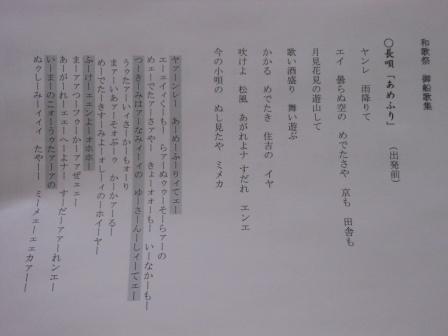 和歌祭　御船歌集
〇長唄「あめふり」　（出発前）
ヤンレ　雨降りて
エイ　曇らぬ空の　めでたさや　京も　田舎も
月見花見の遊山して
歌い酒盛り　舞い遊ぶ
かかる　めでたき　住吉の　イヤ
吹けよ　松風　あがれよナ　すだれ　エンエ
今の小唄の　ぬし見たや　ミメカ
ヤァーンレー　あーめーふーりィてェー
エーェイィくーもー　らァーぬゥゥーそーらァーの
めェーでーたァーさァやー　きょーォォーもー　いーなかーもー
つーきーみはァーなみーィィの　ゆーさーんーしィーてェー
うーたァーいーィさーかーもォーり
まァーいあァーそォぶーゥ　かーかァーるー
めーでーたーきーすーみーよーォしーィのーホイーヤー
ふーけーェエンよーォーオホホー
まーァァつーフゥーかーァァぜェェー
あーがーれーェエェーへーよナー　すーだーァァーれンエー
いーまーのこォーうゥたァーァの
ぬゥしーみーィィィ　たやーー　ミーメェーエェカァーー